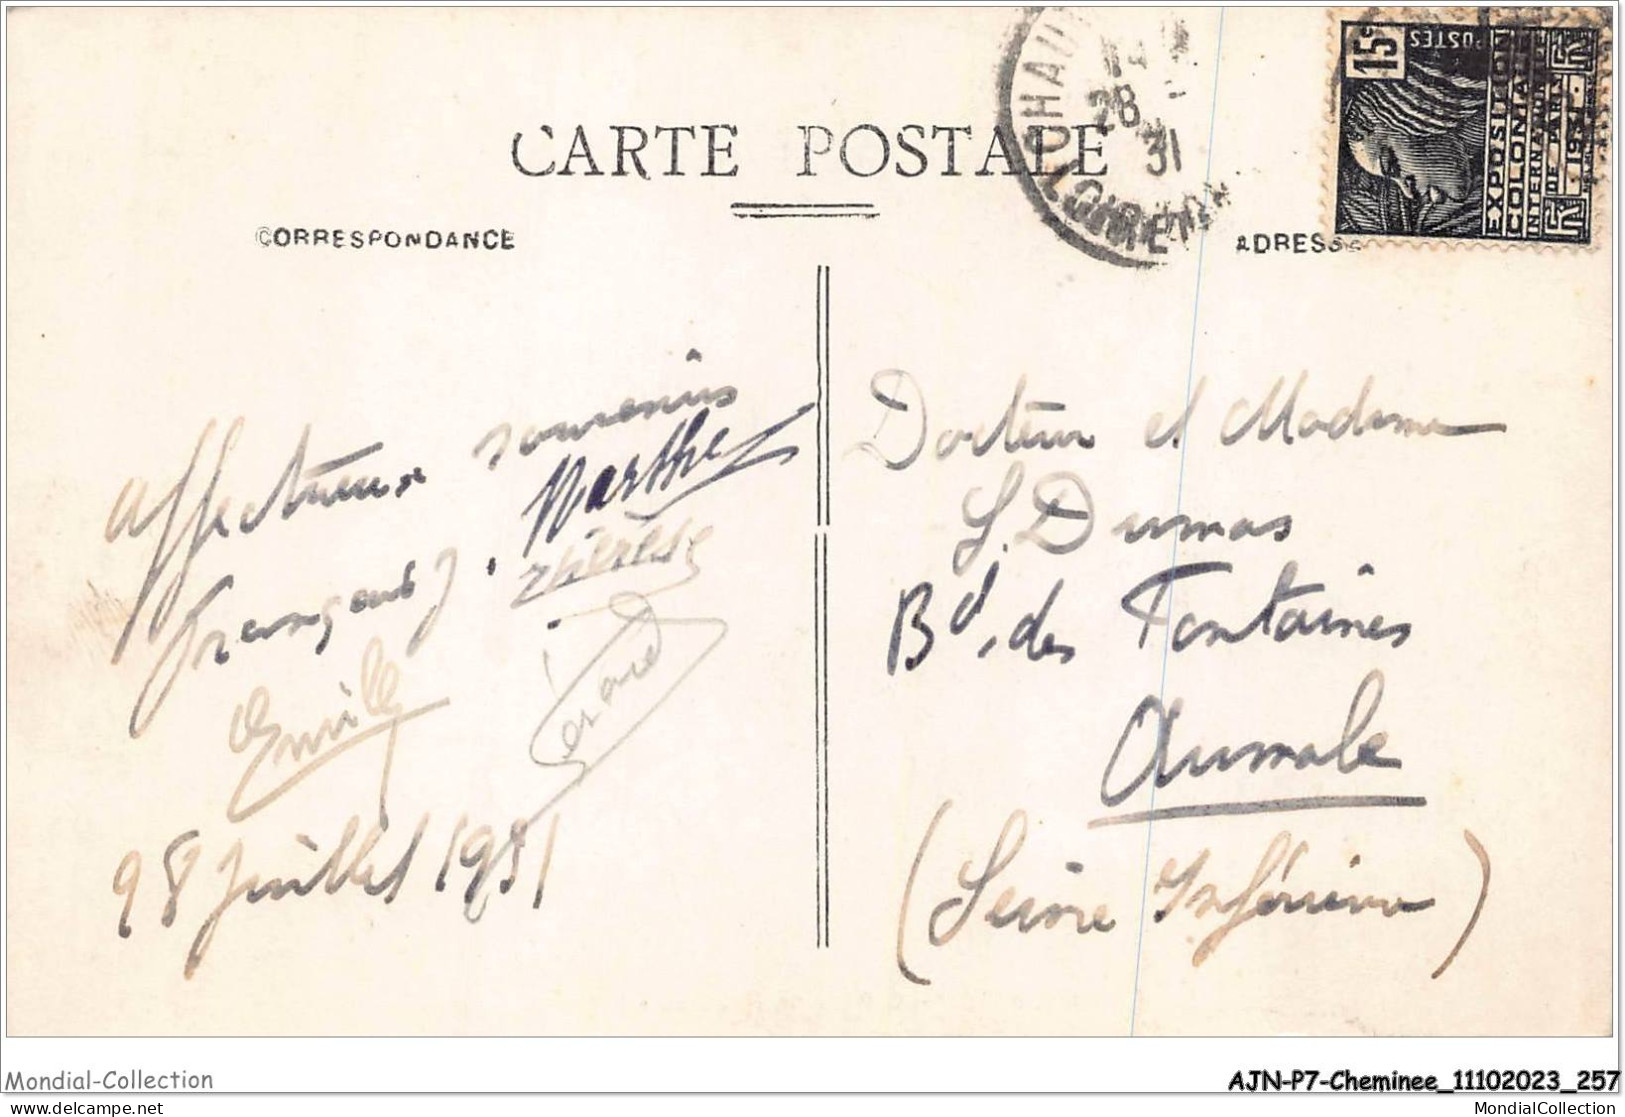 CARTE POSTALE
CORRESPONDANCE
ADRESSE
28
31
LOIRET
15c
POSTES
EXPOSITION
COLONIALE
INTERNATIONALE
DE PARIS
1931
Affectueux souvenirs
Marthe
François J. Thérèse
Emille
Gérard
28 Juillet 1931
Docteur et Madame
L. Dumas
Bd. des Fontaines
Aumale
(Seine Inférieure)
Mondial-Collection
delcampe.net
AJN-P7-Cheminee_11102023_257
MondialCollection